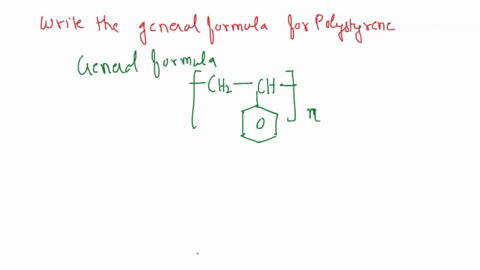 Write the general formula for Polystyrene
General formula
[ CH₂ — CH ] n